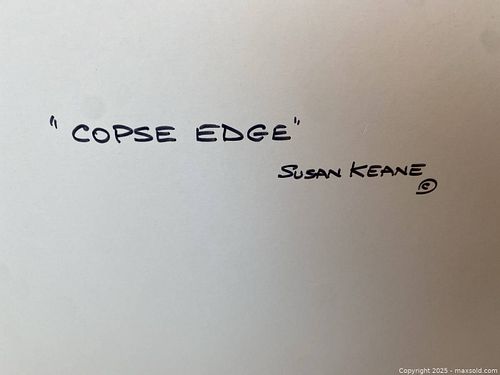 "COPSE EDGE"
SUSAN KEANE
©
Copyright 2025 - maxsold.com